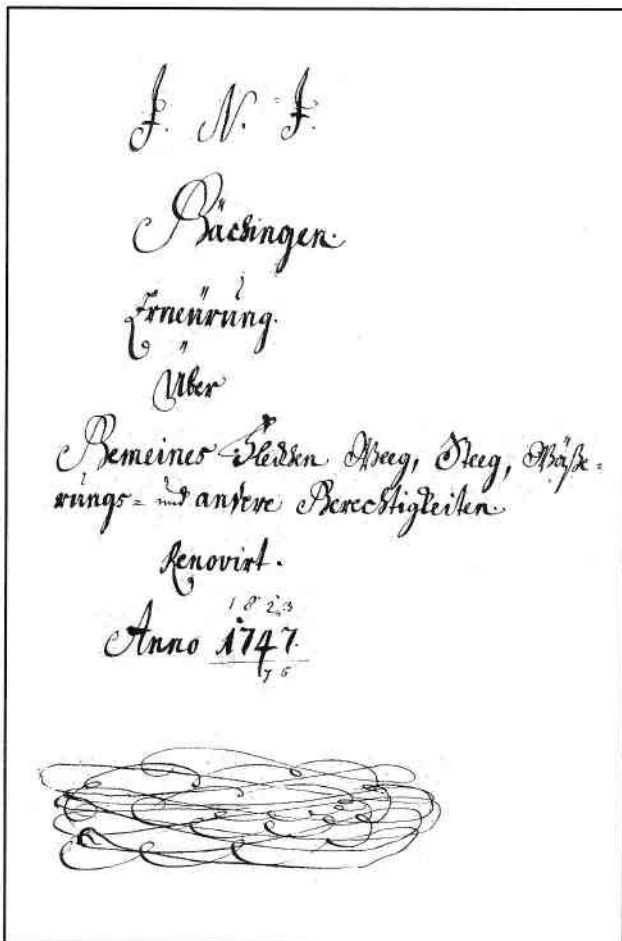 J. N. J.
Gächingen.
Erneürung.
Über
Gemeines Flecken Weeg, Steeg, Wäße=
rungs= und andere Gerechtigkeiten.
Renovirt.
1823
Anno 1747.
76